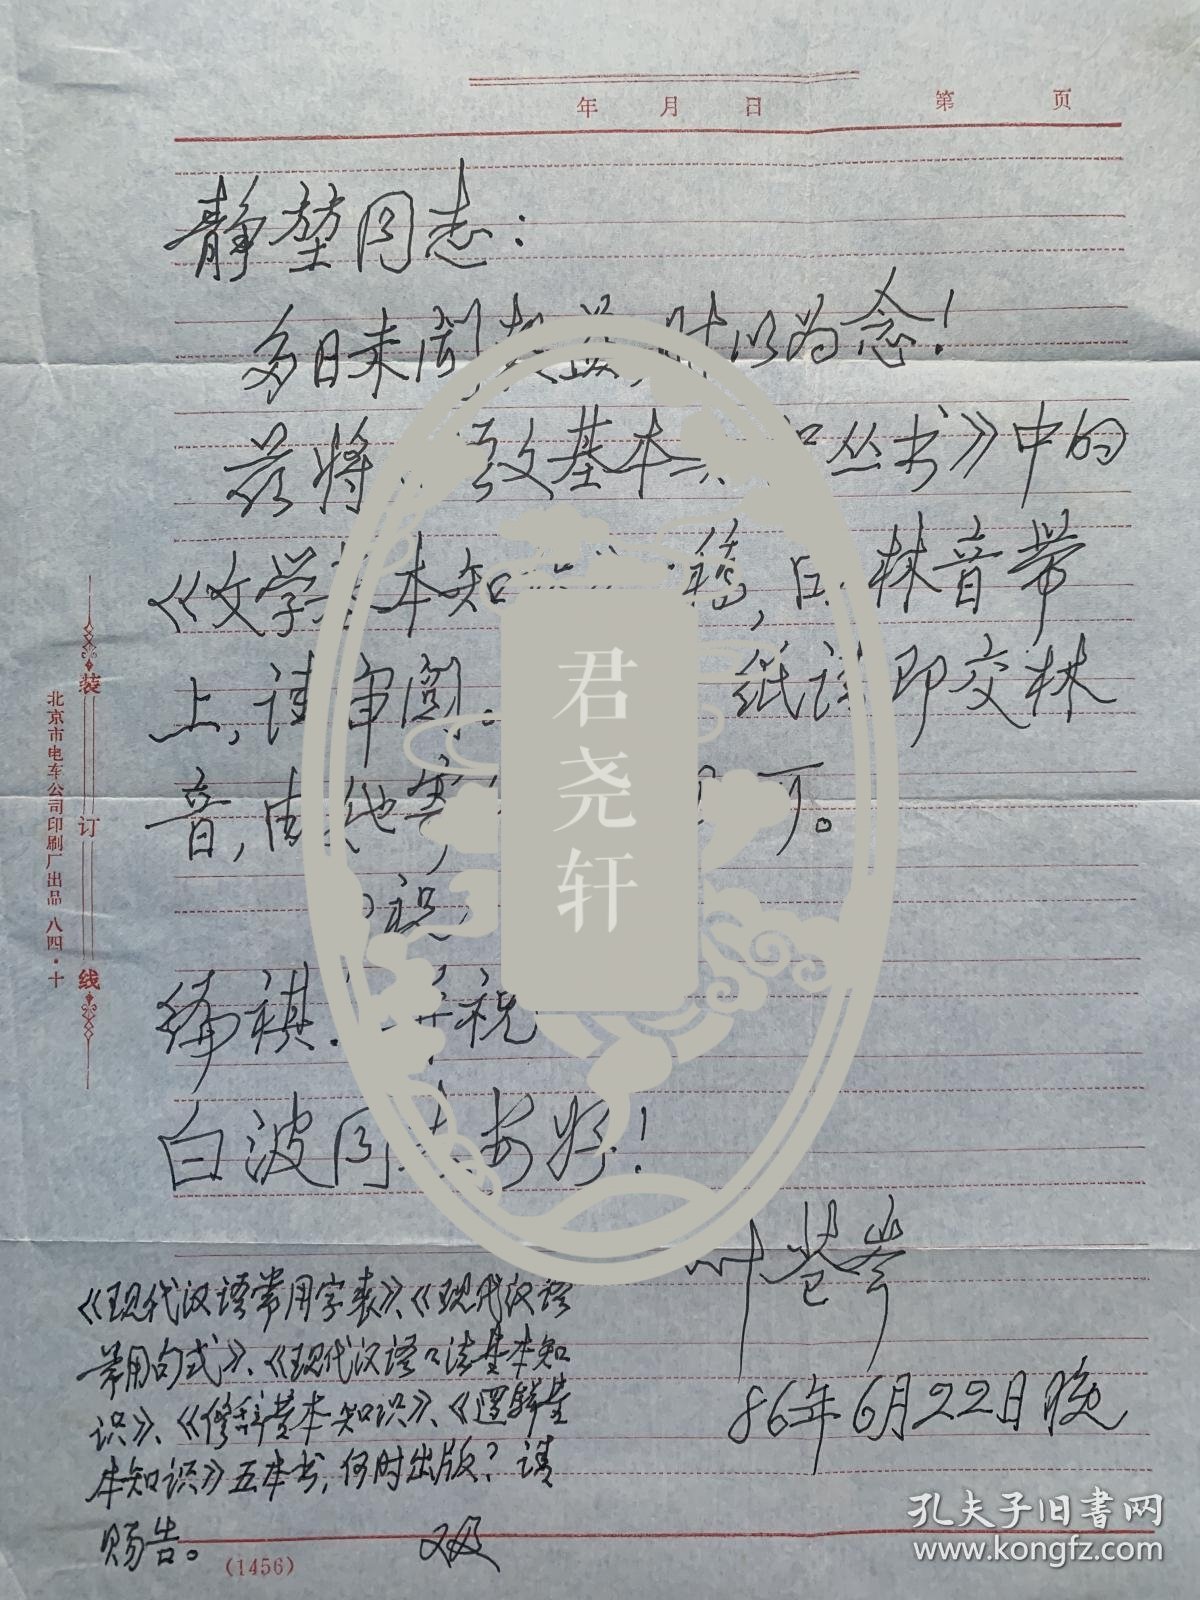 年 月 日 第 页
静堃同志：
多日未闻教益，时以为念！
兹将《语文基本知识丛书》中的
《文学基本知识》稿，由林音带
上，请审阅。纸请即交林
音，由他寄可。
祝
编祺！并祝
白波同志安好！
叶苍岑
86年6月22日晚
《现代汉语常用字表》、《现代汉语
常用句式》、《现代汉语语法基本知
识》、《修辞基本知识》、《逻辑基
本知识》五本书，何时出版？请
赐告。 又及
(1456)
装订线
北京市电车公司印刷厂出品 八四·十
君尧轩
孔夫子旧书网
www.kongfz.com